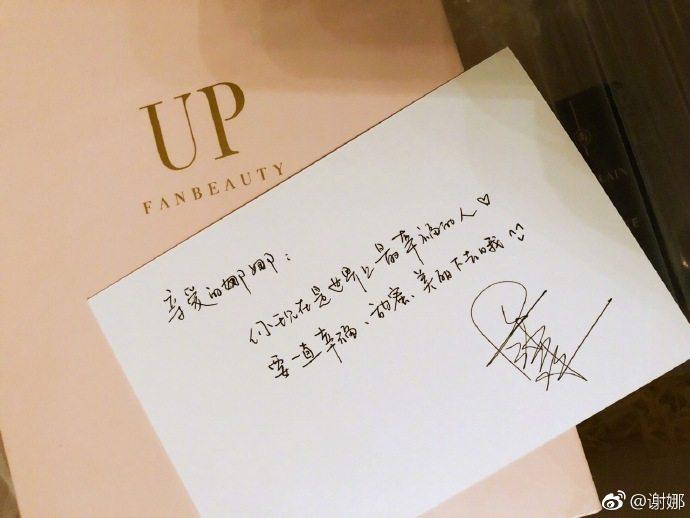 UP
FANBEAUTY
亲爱的娜娜:
你现在是世界上最幸福的人♡
要一直幸福、甜蜜、美丽下去哦
@谢娜